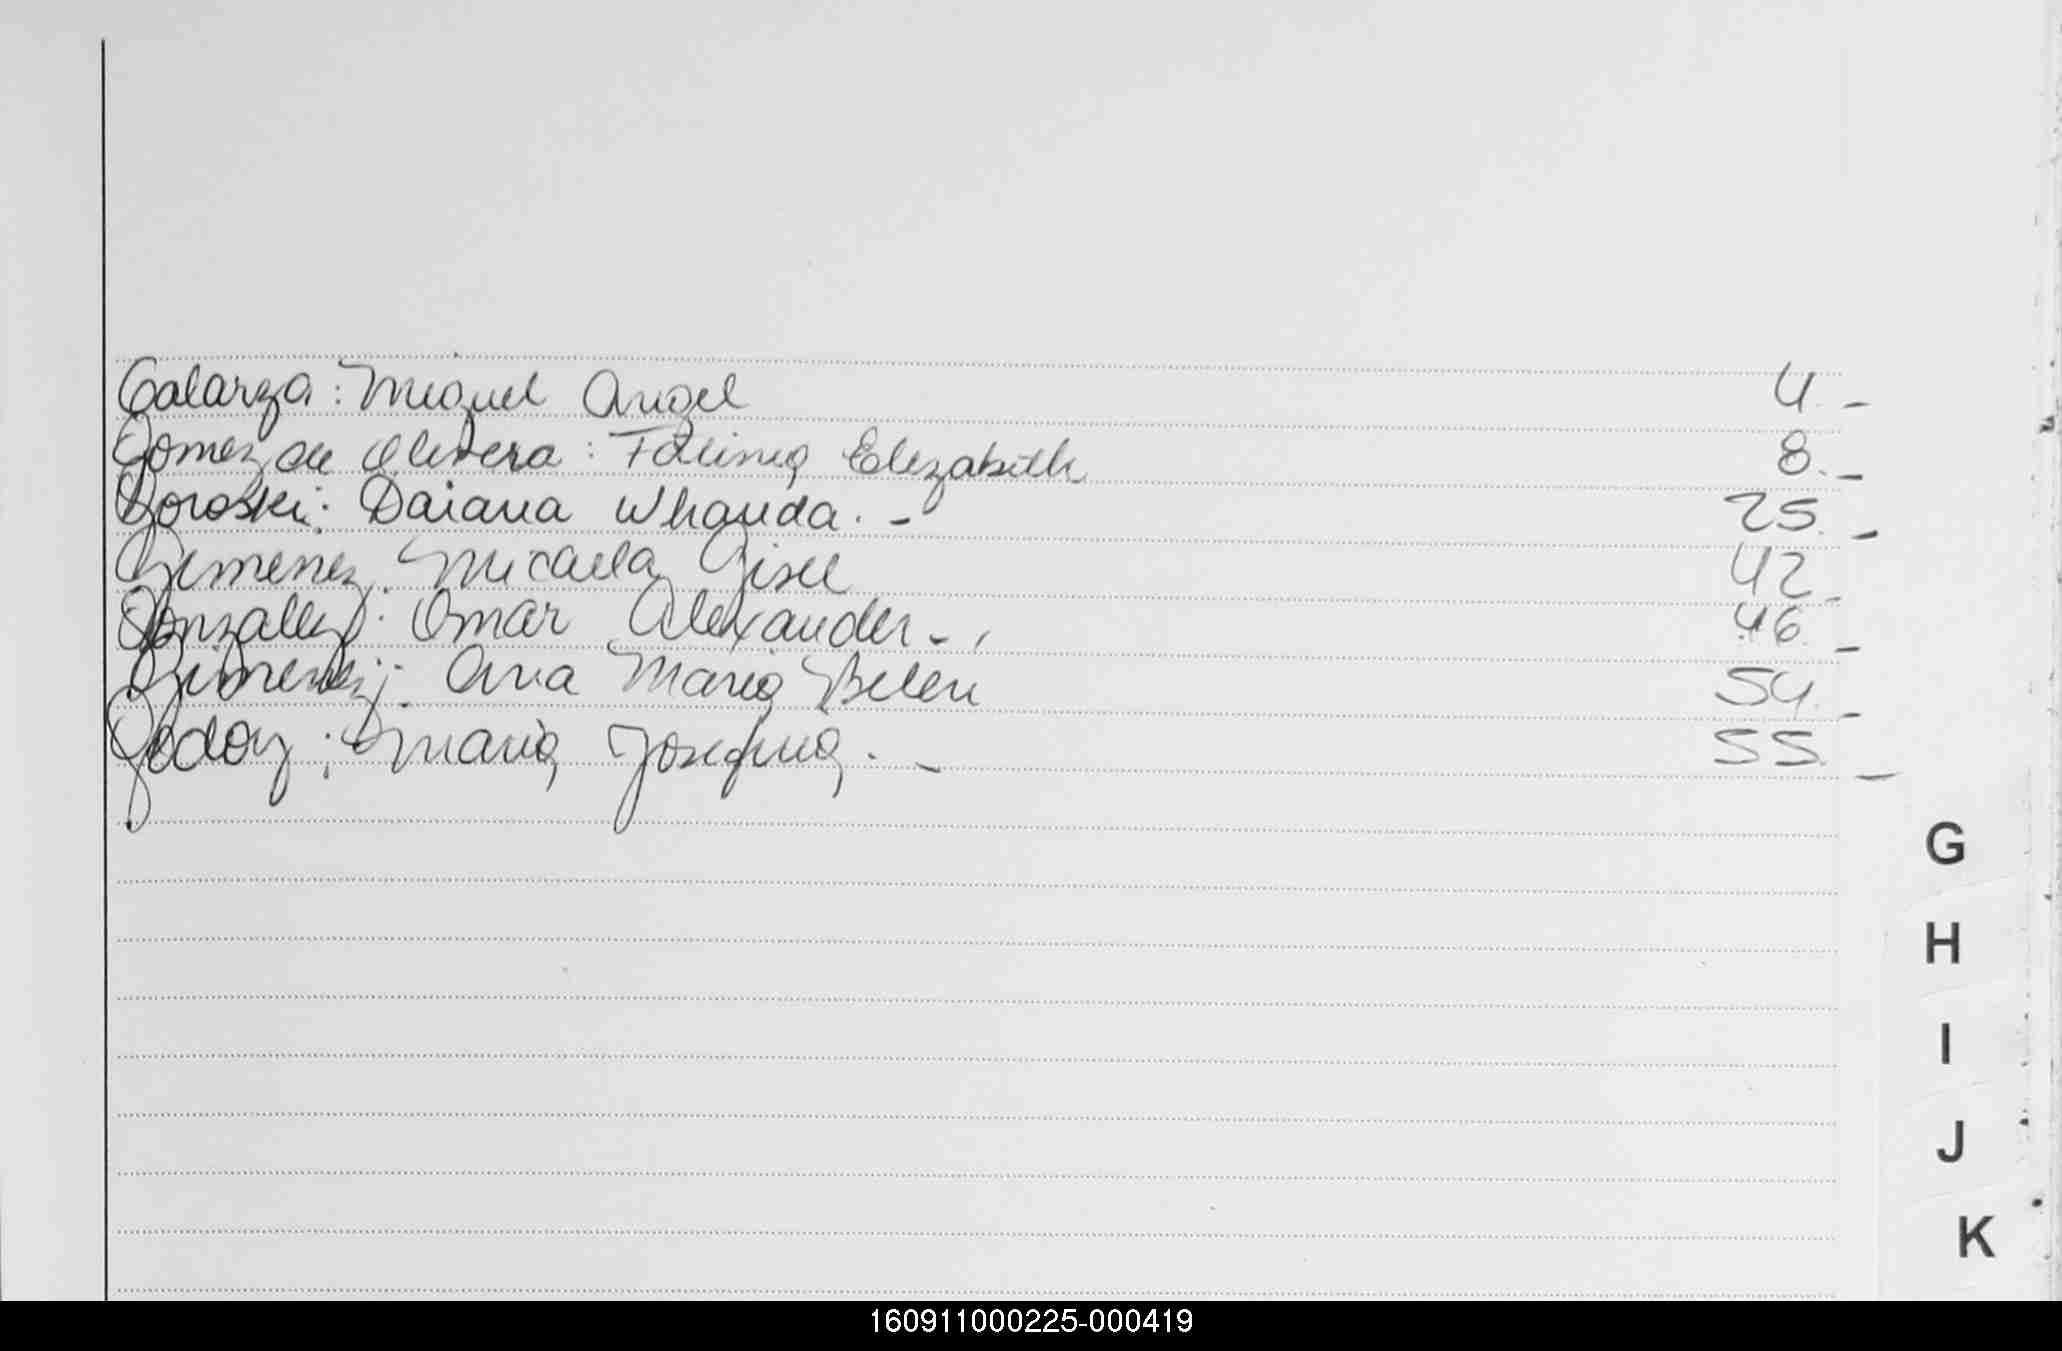 Galarza: Miguel Angel 4.-
Gomez de Olivera: Fatima Elizabeth 8.-
Goroski: Daiana Whanda.- 25.-
Gimenez: Micaela Gisel 42.-
Gonzalez: Omar Alexander.- 46.-
Gimenez: Ana Maria Belen 54.-
Godoy: Maria Josefina.- 55.-
G
H
I
J
K
160911000225-000419